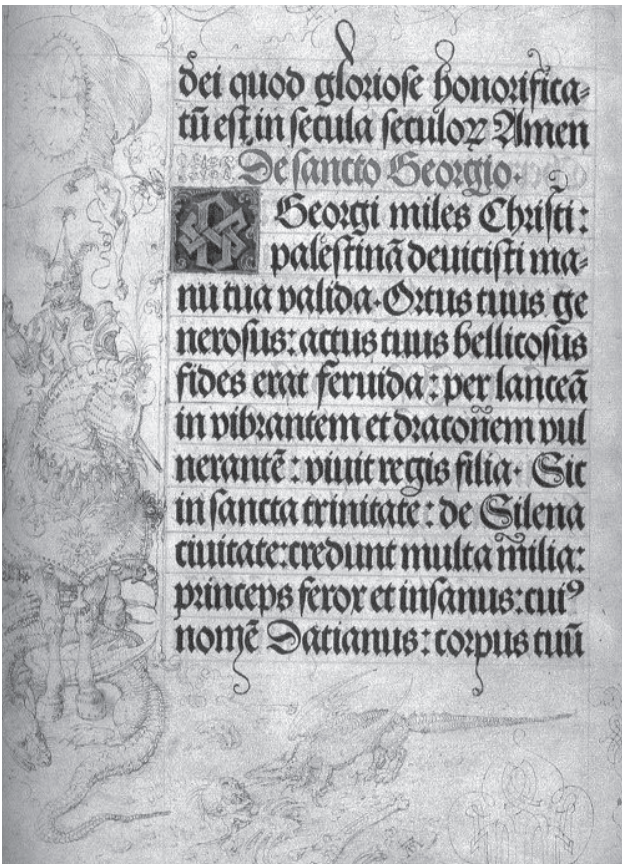 dei quod glorioſe honorifica⸗
tū eſt, in ſecula ſeculoꝝ Amen
De ſancto Georgio.
Georgi miles Chriſti:
paleſtinā deuiciſti ma⸗
nu tua valida. Ortus tuus ge
neroſus: actus tuus bellicoſus
fides erat feruida: per lanceā
in vibrantem et draconem vul
nerantē: viuit regis filia. Sic
in ſancta trinitate: de Silena
ciuitate: credunt multa milia:
princeps ferox et inſanus: cuiꝰ
nomē Datianus: corpus tuū